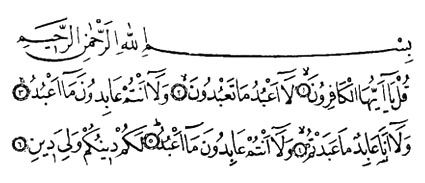 بِسْمِ اللهِ الرَّحْمٰنِ الرَّحِيمِ
قُلْ يَا اَيُّهَا الْكَافِرُونَۙ ﴿١﴾ لَٓا اَعْبُدُ مَا تَعْبُدُونَۙ ﴿٢﴾ وَلَٓا اَنْتُمْ عَابِدُونَ مَٓا اَعْبُدُۚ ﴿٣﴾
وَلَٓا اَنَا۬ عَابِدٌ مَا عَبَدْتُمْۙ ﴿٤﴾ وَلَٓا اَنْتُمْ عَابِدُونَ مَٓا اَعْبُدُۜ ﴿٥﴾ لَكُمْ دِينُكُمْ وَلِيَ دِينِ ﴿٦﴾